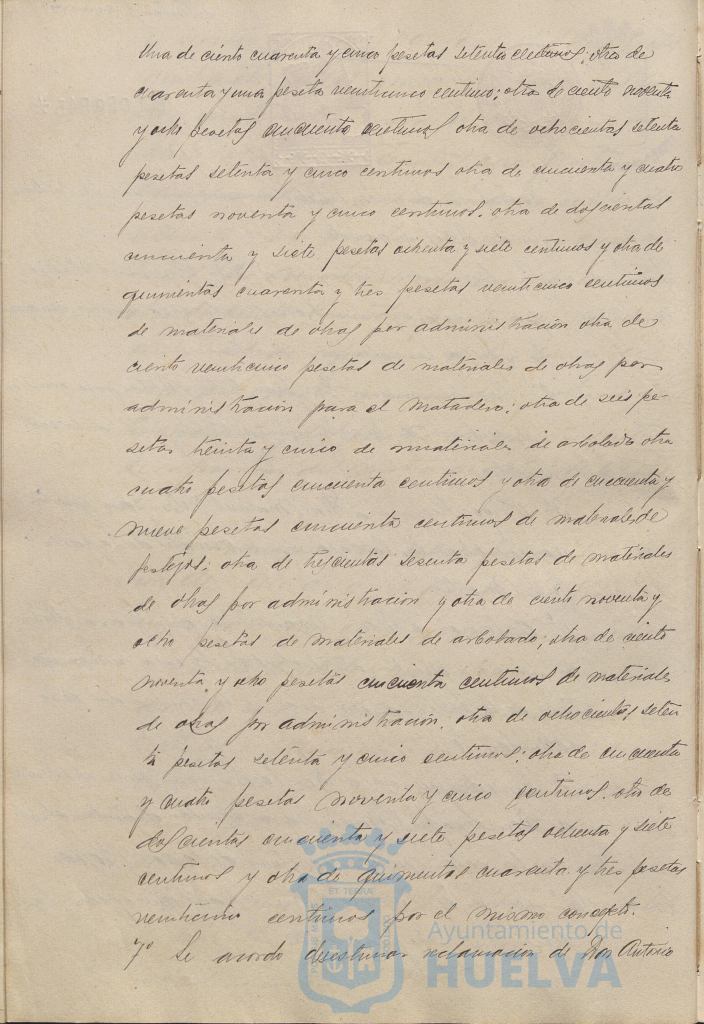 Una de ciento cuarenta y cinco pesetas setenta centimos; otra de
cuarenta y una peseta veintiunco centimos; otra de ciento noventa
y ocho pesetas cincuenta centimos otra de ochocientas setenta
pesetas setenta y cinco centimos otra de cincuenta y cuatro
pesetas noventa y cinco centimos. otra de doscientas
cincuenta y siete pesetas ochenta y siete centimos y otra de
quinientas cuarenta y tres pesetas veinticinco centimos
de materiales de obras por administración otra de
ciento veinticinco pesetas de materiales de obras por
administración para el Matadero; otra de seis pe-
setas treinta y cinco de materiales de arbolado otra
cuatro pesetas cincuenta centimos y otra de cincuenta y
nueve pesetas cincuenta centimos de materiales de
festejos; otra de trescientas sesenta pesetas de materiales
de obras por administración y otra de ciento noventa y
ocho pesetas de materiales de arbolado; otra de ciento
noventa y ocho pesetas cincuenta centimos de materiales
de obras por administración. otra de ochocientas seten
ta pesetas setenta y cinco centimos; otra de cincuenta
y cuatro pesetas noventa y cinco centimos. otra de
doscientas cincuenta y siete pesetas ochenta y siete
centimos y otra de quinientas cuarenta y tres pesetas
veinticinco centimos por el mismo concepto.
7º Se acordo desestimar reclamacion de Don Antonio
ET TERRAE
Ayuntamiento de
HUELVA